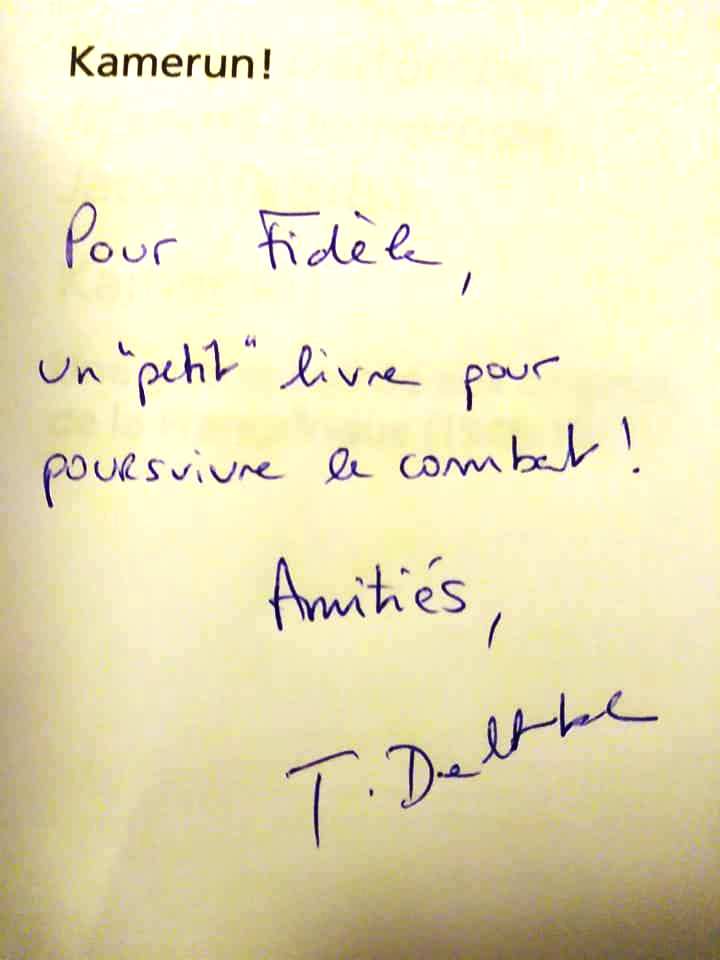 Kamerun!
Pour Fidèle,
un "petit" livre pour
poursuivre le combat !
Amitiés,
T. Deltombe